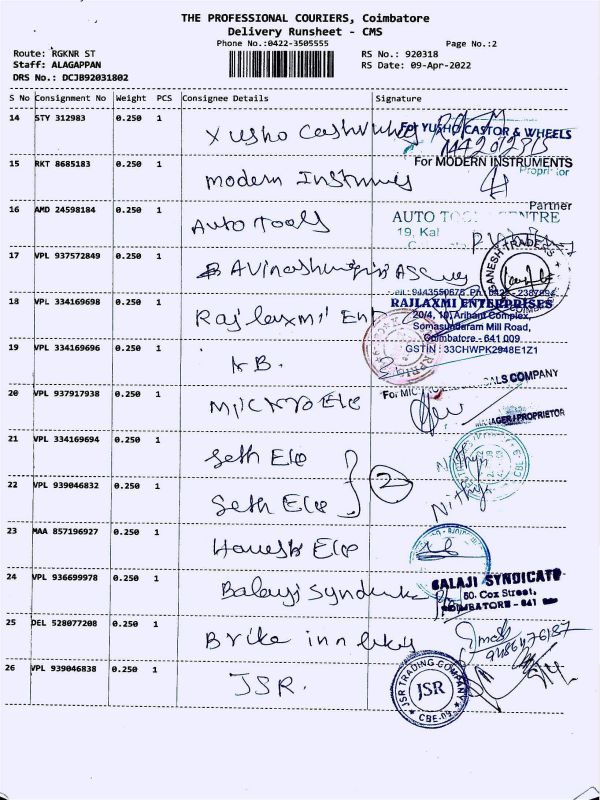 THE PROFESSIONAL COURIERS, Coimbatore
Delivery Runsheet - CMS
Phone No.:0422-3505555 Page No.:2
Route: RGKNR ST RS No.: 920318
Staff: ALAGAPPAN RS Date: 09-Apr-2022
DRS No.: DCJB92031802
S No Consignment No Weight PCS Consignee Details Signature
14 STY 312983 0.250 1 Yusho Castor
For YUSHO CASTOR & WHEELS
15 RKT 8685183 0.250 1 Modern Instrumes
For MODERN INSTRUMENTS
Partner
16 AMD 24598184 0.250 1 Auto Tools
AUTO CENTRE
19, Kal
17 VPL 937572849 0.250 1
GANESH TRADERS
18 VPL 334169698 0.250 1 Rajlaxmi Ent
RAJLAXMI ENTERPRISES
20/4, 10, Arihant Complex,
Somasundaram Mill Road,
Coimbatore - 641 009
GSTIN : 33CHWPK2948E1Z1
19 VPL 334169696 0.250 1 KB.
20 VPL 937917938 0.250 1 Mickro Ele
COMPANY
MANAGER/PROPRIETOR
21 VPL 334169694 0.250 1 Seth Ele
Nithya
22 VPL 939046832 0.250 1 Seth Ele 2
Nithya
23 MAA 857196927 0.250 1 Ele
24 VPL 936699978 0.250 1 Balaji Syndicate
BALAJI SYNDICATE
50. Cox Street,
COIMBATORE - 641
25 DEL 528077208 0.250 1
26 VPL 939046838 0.250 1 JSR.
JSR TRADING COMPANY
JSR
CBE-09